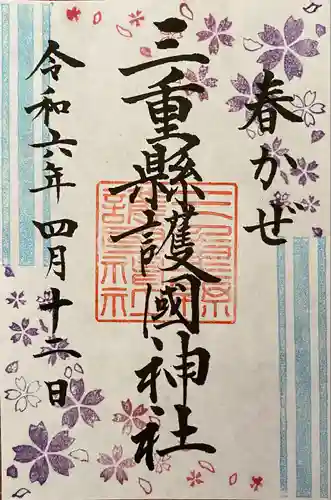 春かぜ
三重縣護國神社
令和六年四月十二日